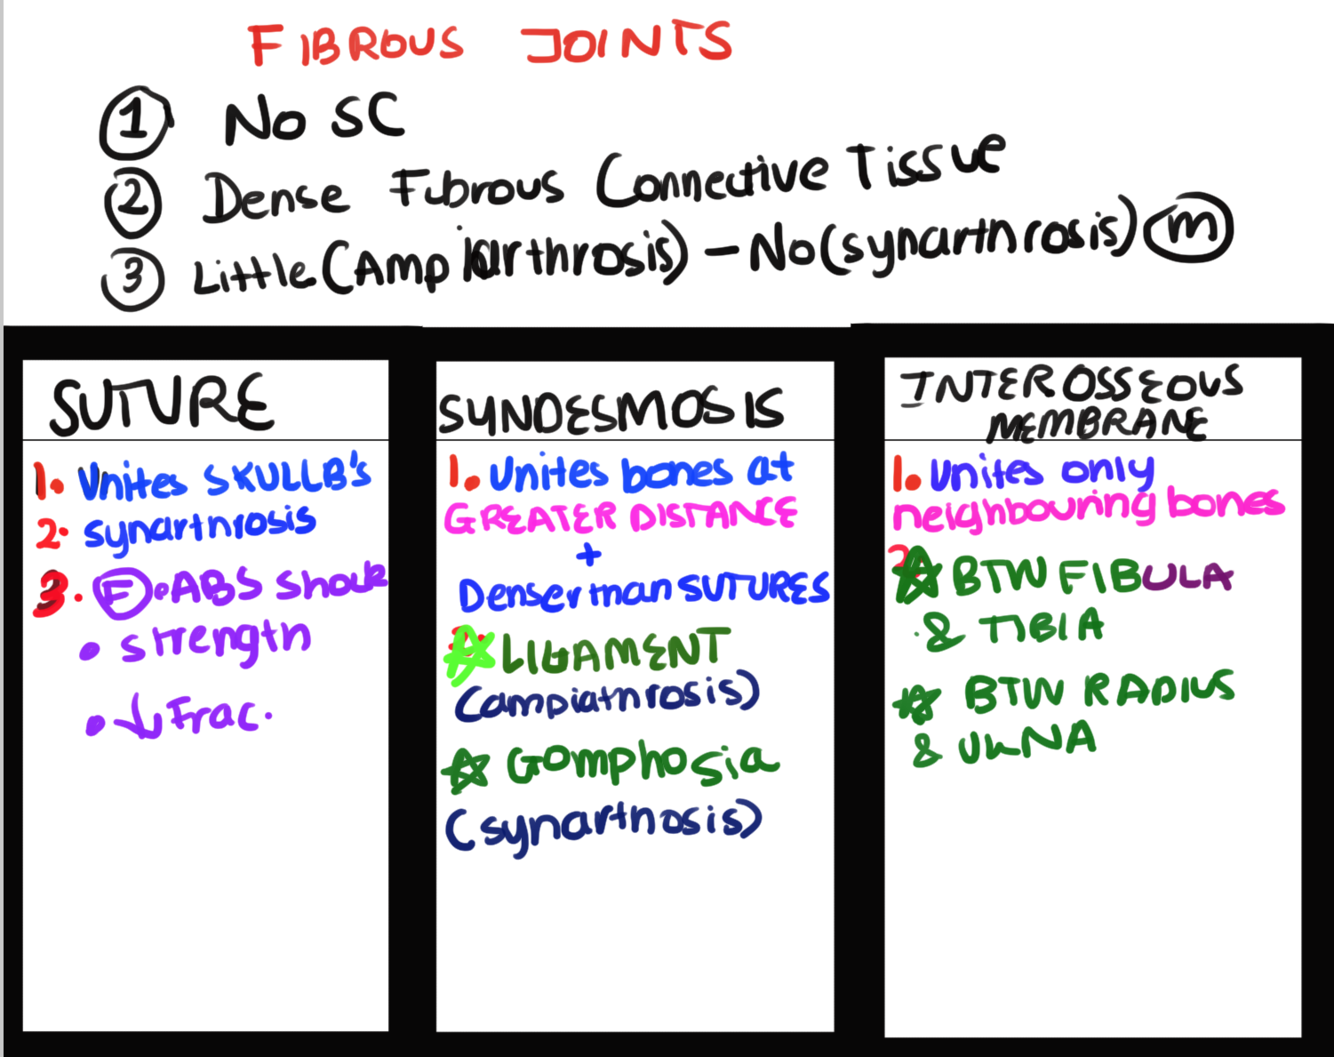 FIBROUS JOINTS
1 No SC
2 Dense Fibrous Connective Tissue
3 Little (Ampiarthrosis) - No (synarthrosis) m
SUTURE
1. Unites SKULL B's
2. synarthrosis
3. F • ABS Shock
• strength
• ↓ Frac.
SYNDESMOSIS
1. Unites bones at
GREATER DISTANCE
+
Denser than SUTURES
☆ LIGAMENT
(ampiathrosis)
☆ Gomphosia
(synarthosis)
INTEROSSEOUS
MEMBRANE
1. Unites only
neighbouring bones
2. ☆ BTW FIBULA
& TIBIA
☆ BTW RADIUS
& ULNA